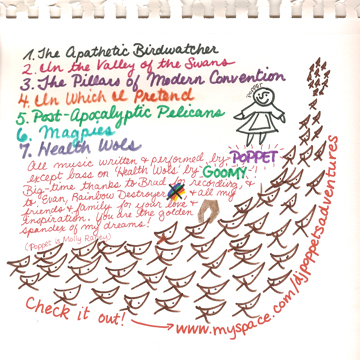 1. The Apathetic Birdwatcher
2. In the Valley of the Swans
3. The Pillars of Modern Convention
4. In Which I Pretend
5. Post-Apocalyptic Pelicans
6. Magpies
7. Health Wols
Poppet
All music written & performed by POPPET
except bass on "Health Wols" by GOOMY.
Big-time thanks to Brad for recording, &
to Evan, Rainbow Destroyer & all my
friends & family for your love &
inspiration. You are the golden
spandex of my dreams!
(Poppet is Molly)
Check it out! → www.myspace.com/djpoppetsadventures